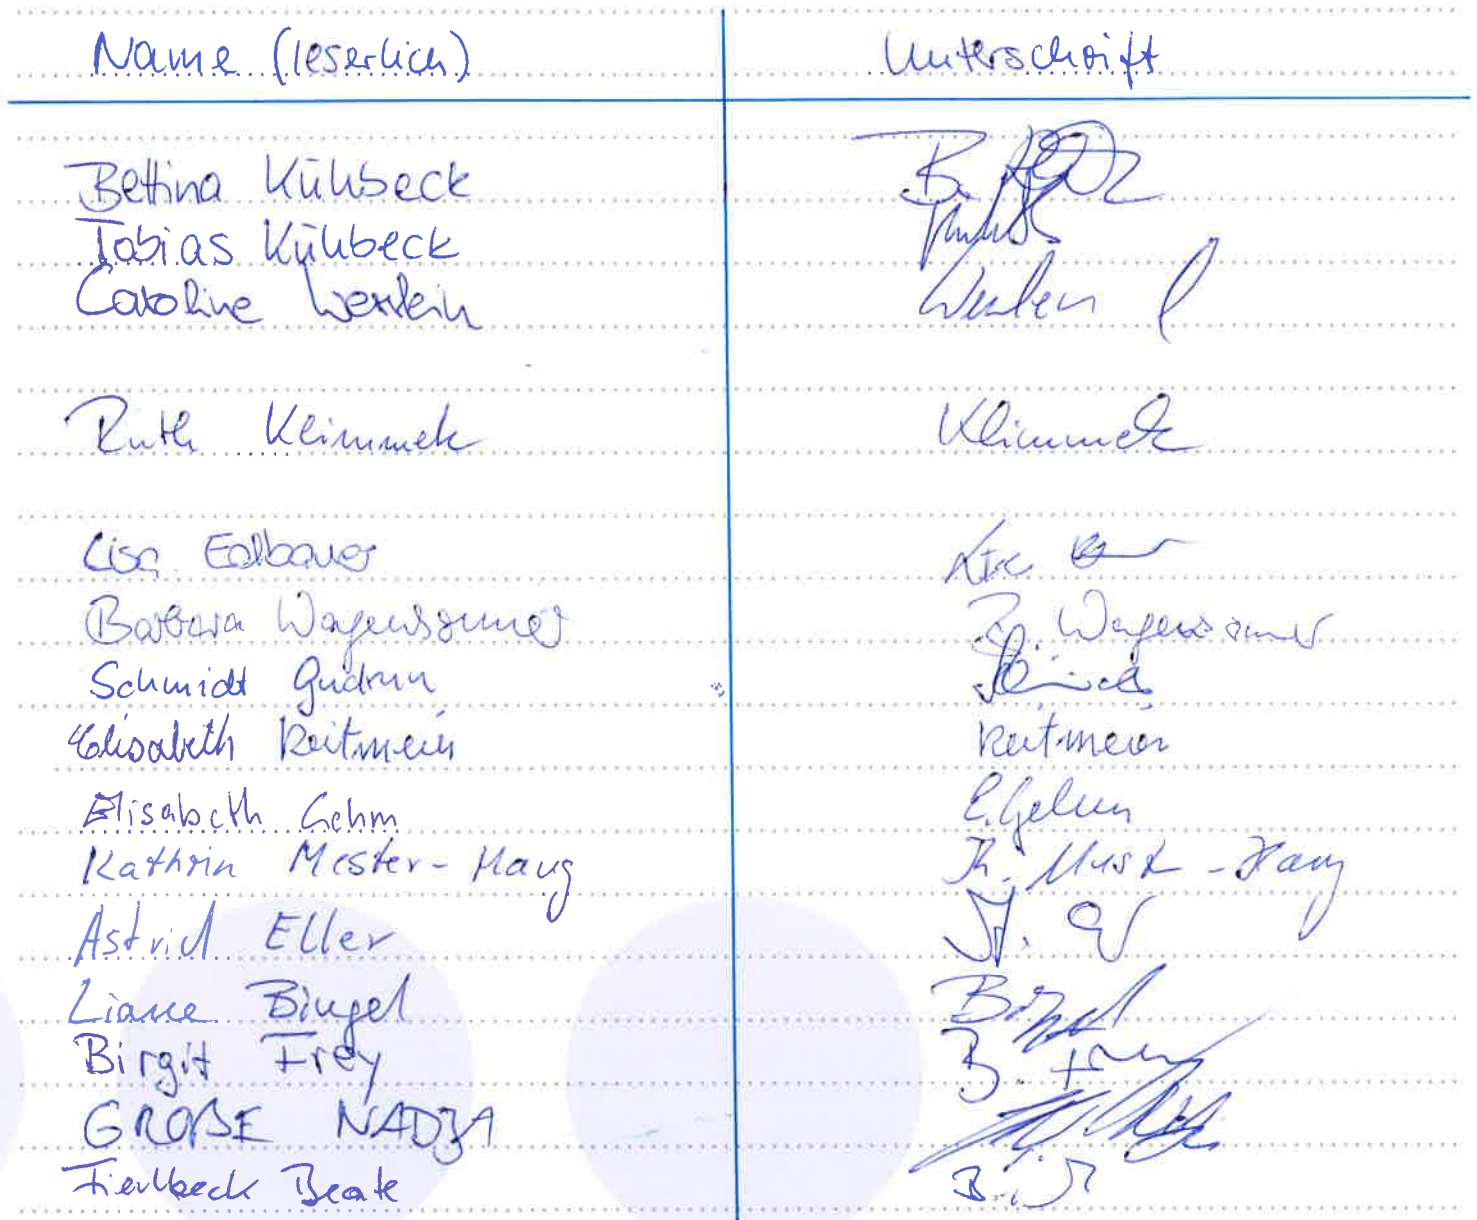 Name (leserlich) Unterschrift
Bettina Kühbeck B.
Tobias Kühbeck
Caroline
Ruth Klimmek Klimmek
Lisa
Barbara Wagensonner B. Wagensonner
Schmidt Gudrun
Elisabeth Reitmeier Reitmeier
Elisabeth Gehm E. Gehm
Kathrin Mester-Haug
Astrid Eller
Liane Bingel Bingel
Birgit Frey B. Frey
GROßE NADJA
Fierlbeck Beate B.